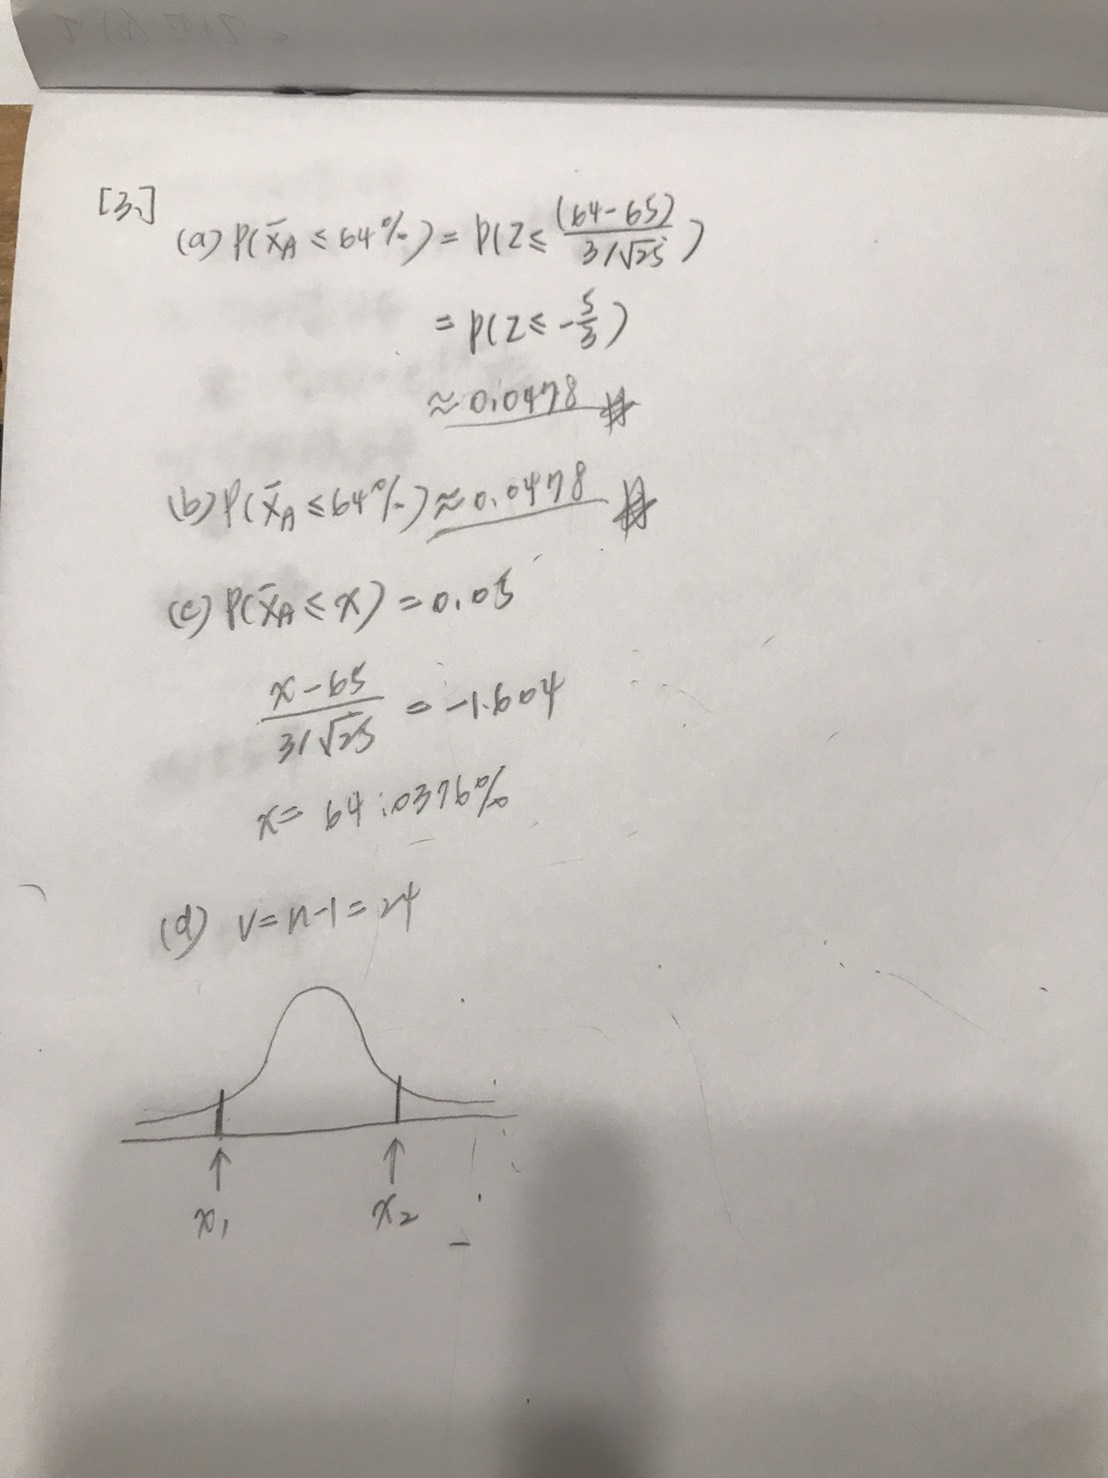 [3.]
(a) P(x̄A ≤ 64%) = P(Z ≤ (64-65) / 3/√25)
= P(Z ≤ -5/3)
≈ 0.0478 #
(b) P(x̄A ≤ 64%) ≈ 0.0478 #
(c) P(x̄A ≤ x) = 0.05
x-65 / 3/√25 = -1.604
x = 64.0376%
(d) v = n-1 = 24
x₁ x₂